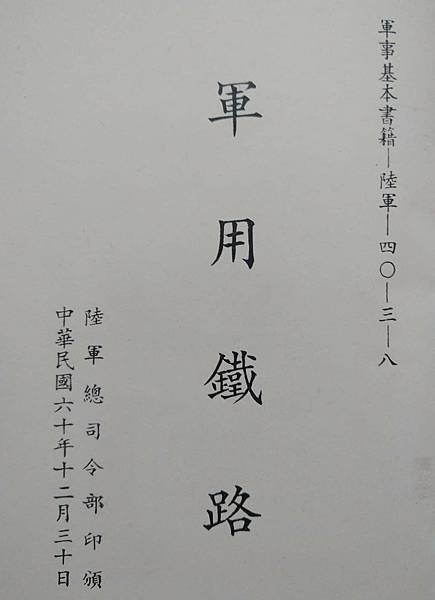 軍事基本書籍—陸軍—四〇—三—八
軍用鐵路
陸軍總司令部印頒
中華民國六十年十二月三十日